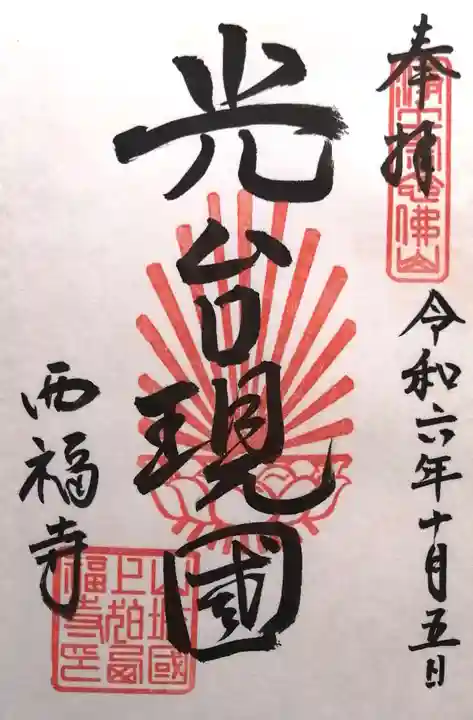 奉拝
令和六年十月五日
光台現國
西福寺